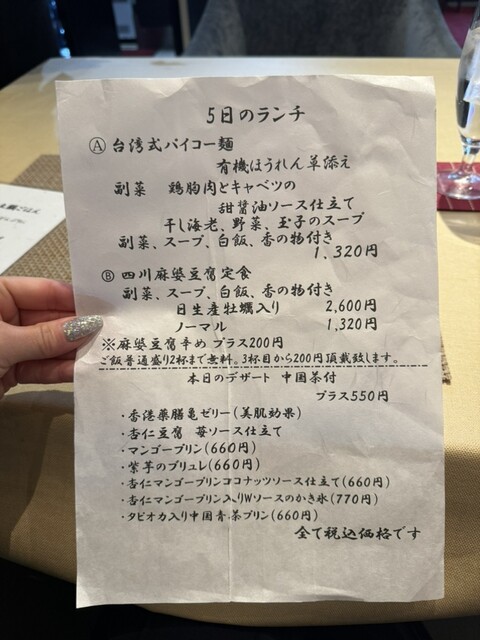 5日のランチ
Ⓐ 台湾式パイコー麺
有機ほうれん草添え
副菜 鶏胸肉とキャベツの
甜醤油ソース仕立て
干し海老、野菜、玉子のスープ
副菜、スープ、白飯、香の物付き
1,320円
Ⓑ 四川麻婆豆腐定食
副菜、スープ、白飯、香の物付き
日生産牡蠣入り 2,600円
ノーマル 1,320円
※麻婆豆腐辛め プラス200円
ご飯普通盛り2杯まで無料。3杯目から200円頂戴致します。
本日のデザート 中国茶付
プラス550円
・香港薬膳亀ゼリー(美肌効果)
・杏仁豆腐 苺ソース仕立て
・マンゴープリン(660円)
・紫芋のブリュレ(660円)
・杏仁マンゴープリンココナッツソース仕立て(660円)
・杏仁マンゴープリン入りWソースのかき氷(770円)
・タピオカ入り中国青茶プリン(660円)
全て税込価格です